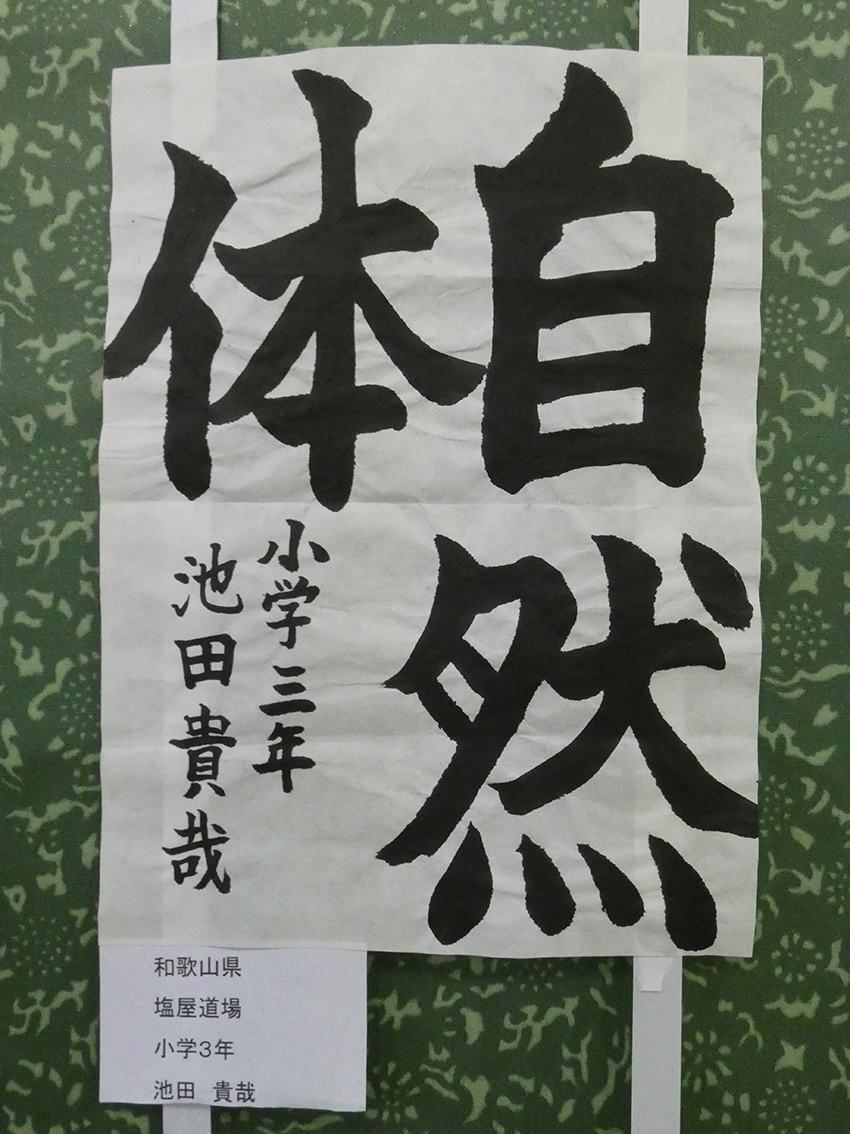 自然
体
小学三年
池田貴哉
和歌山県
塩屋道場
小学3年
池田　貴哉